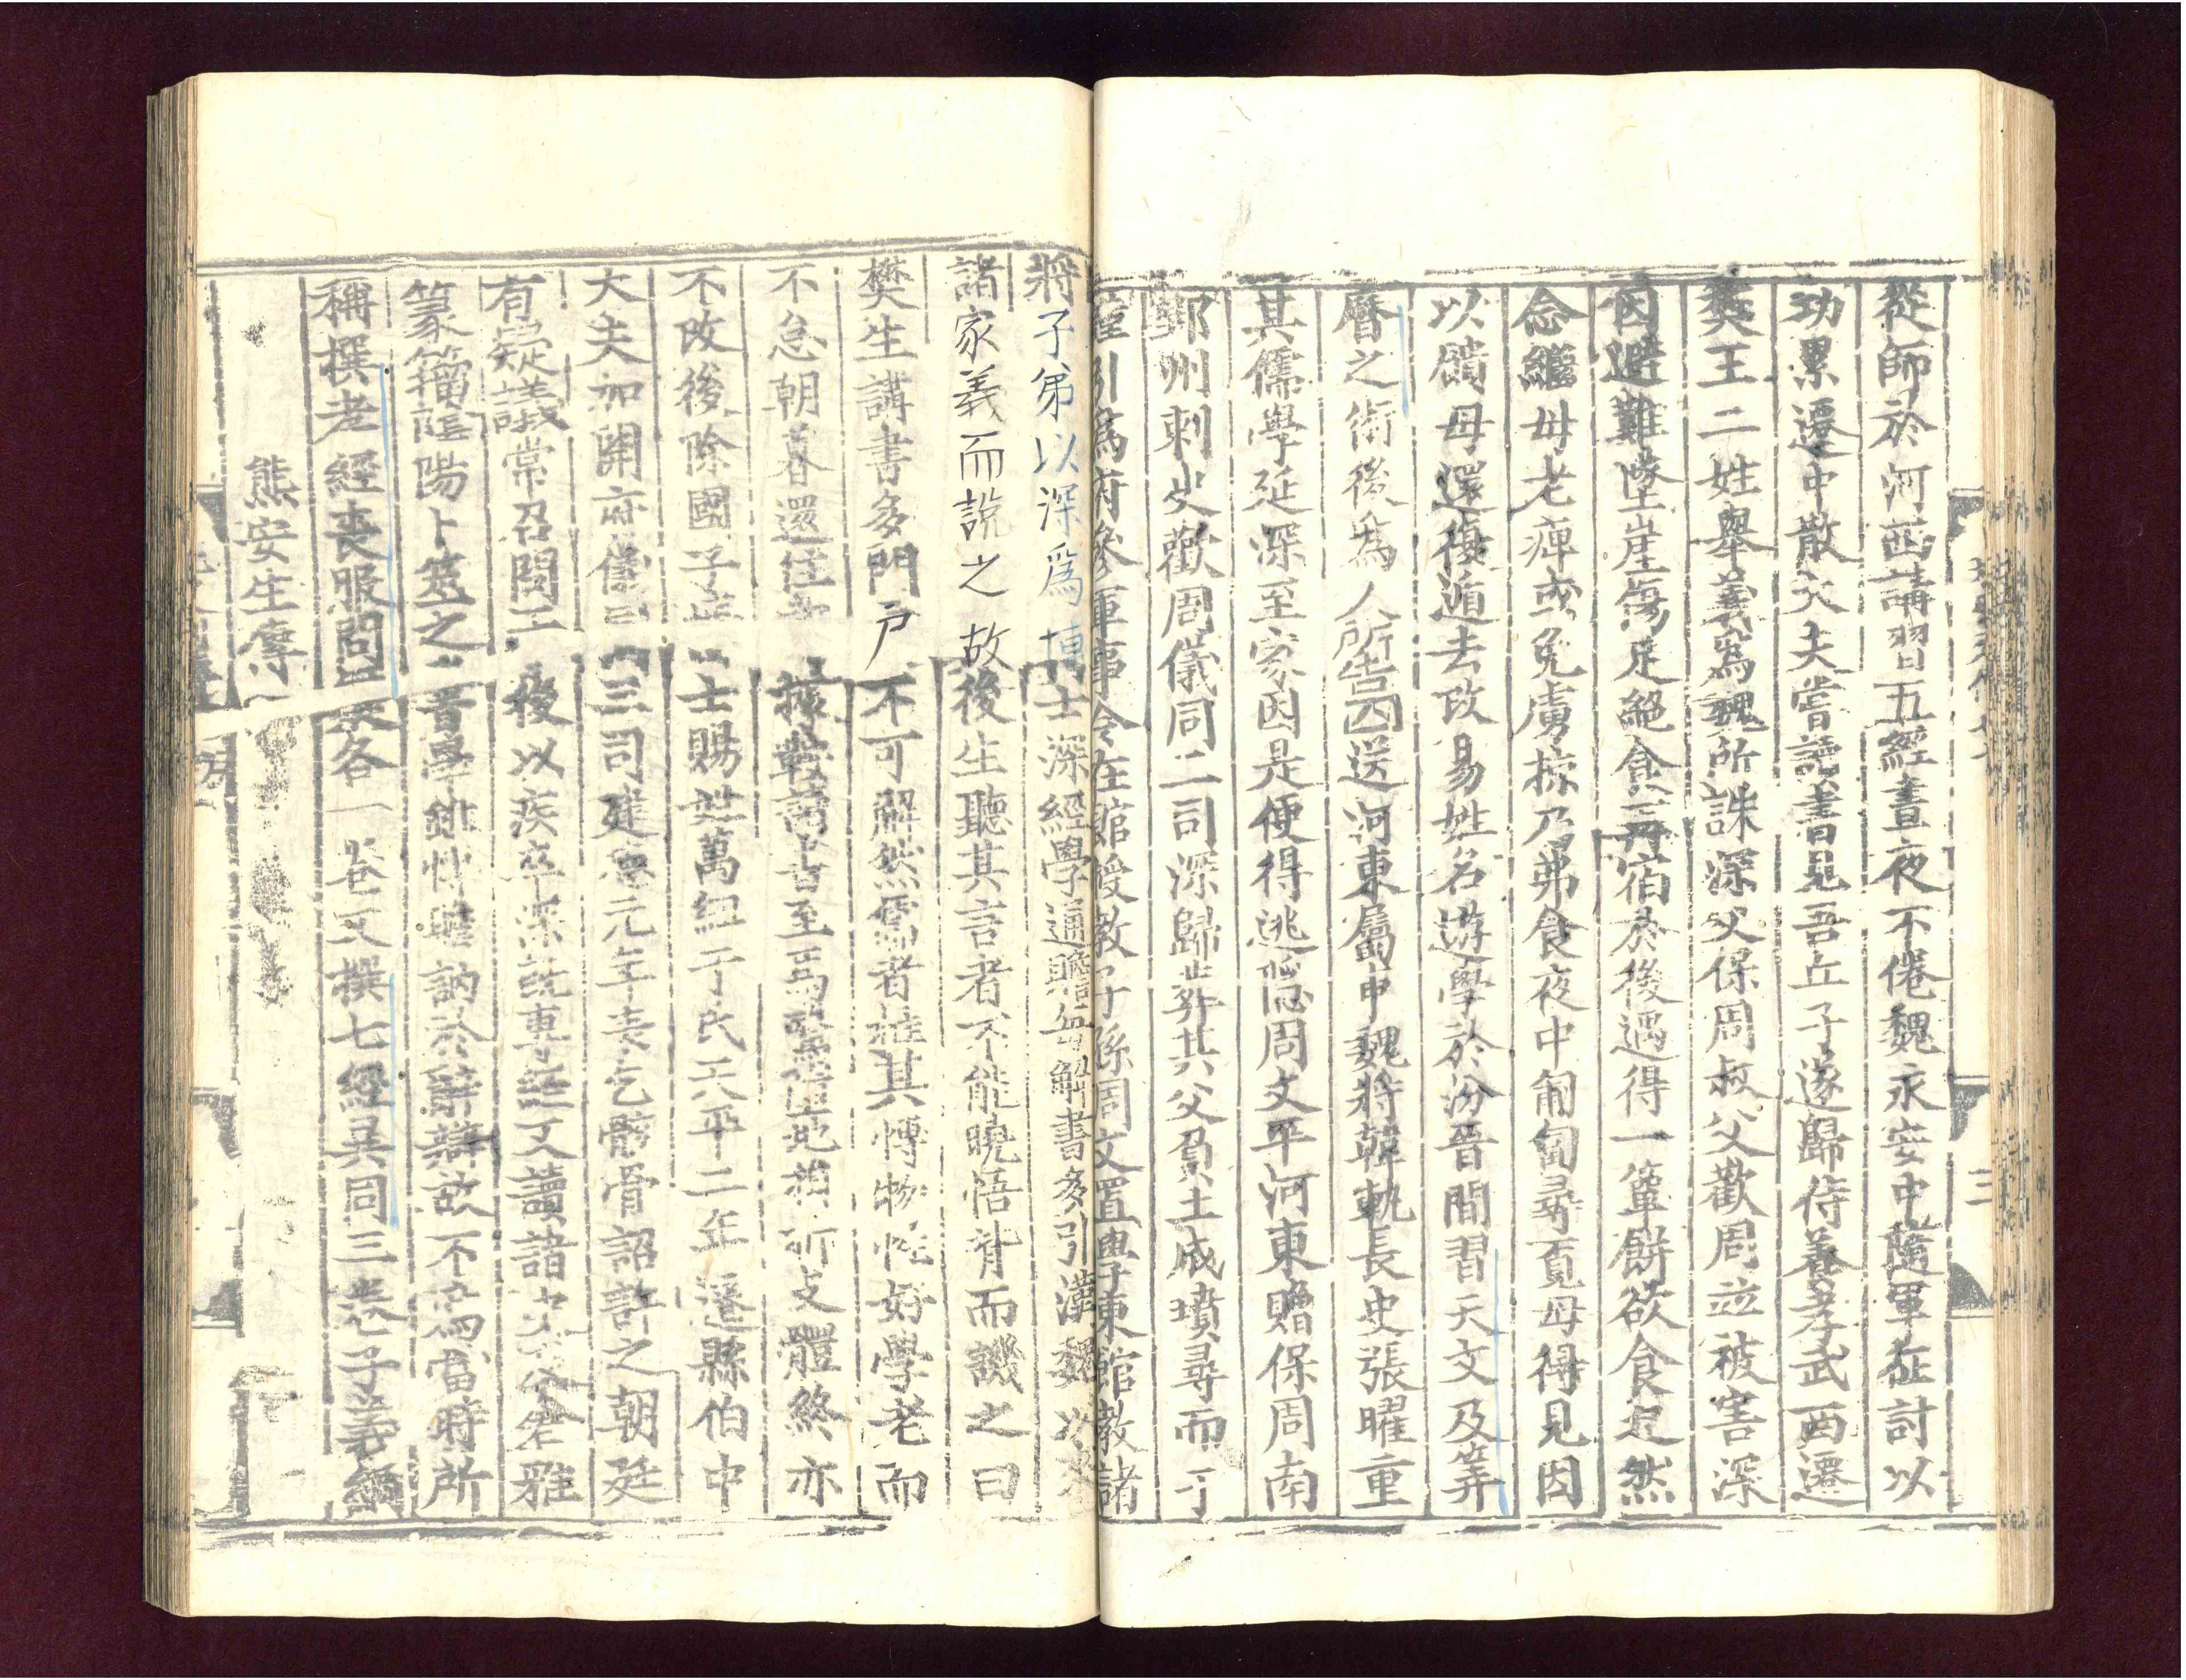 從師於河西講習五經晝夜不倦魏永安中隨軍征討以
功累遷中散大夫嘗讀書見吾丘子遂歸侍養孝武西遷
樊王二姓舉義爲魏所誅深父保周叔父歡周並被害深
因避難墜崖傷足絕食再宿於後遇得一簞餅欲食之然
念繼母老痺或免虜掠乃弗食夜中匍匐尋覓母得見因
以饋母還復遁去改易姓名遊學於汾晉間習天文及筭
曆之術後爲人所告囚送河東屬申魏將韓軌長史張曜重
其儒學延深至家因是便得逃隱周文平河東贈保周南
郢州刺史歡周儀同二司深歸葬其父負土成墳尋而于
謹引爲府參軍事令在館授教子孫周文置學東館教諸
將子弟以深爲博士深經學通贍每解書多引漢魏以來
諸家義而說之故後生聽其言者不能曉悟背而譏之曰
樊生講書多門戶不可解然儒者推其博物性好學老而
不怠朝暮還往據鞍讀書至馬驚墜地損折支體終亦
不改後除國子博士賜姓萬紐于氏天平二年遷縣伯中
大夫加開府儀同三司建德元年表乞骸骨詔許之朝廷
有疑議常召問工後以疾卒深既專經又讀諸史及蒼雅
篆籀陰陽卜筮之書學雖博贍訥於辭辯故不爲當時所
稱撰孝經喪服問疑各一卷又撰七經異同三卷子義綱
熊安生傳
三